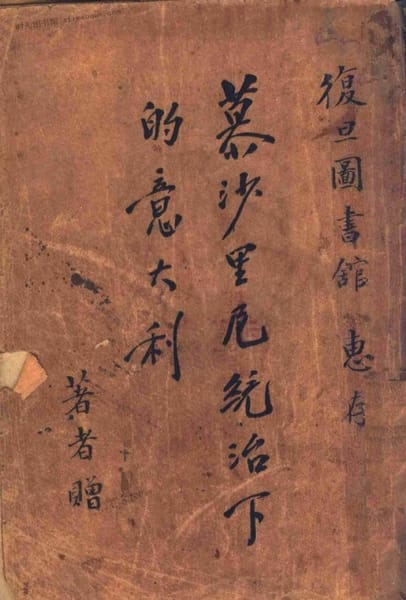 復旦圖書舘 惠存
慕沙里尼統治下
的意大利
著者贈